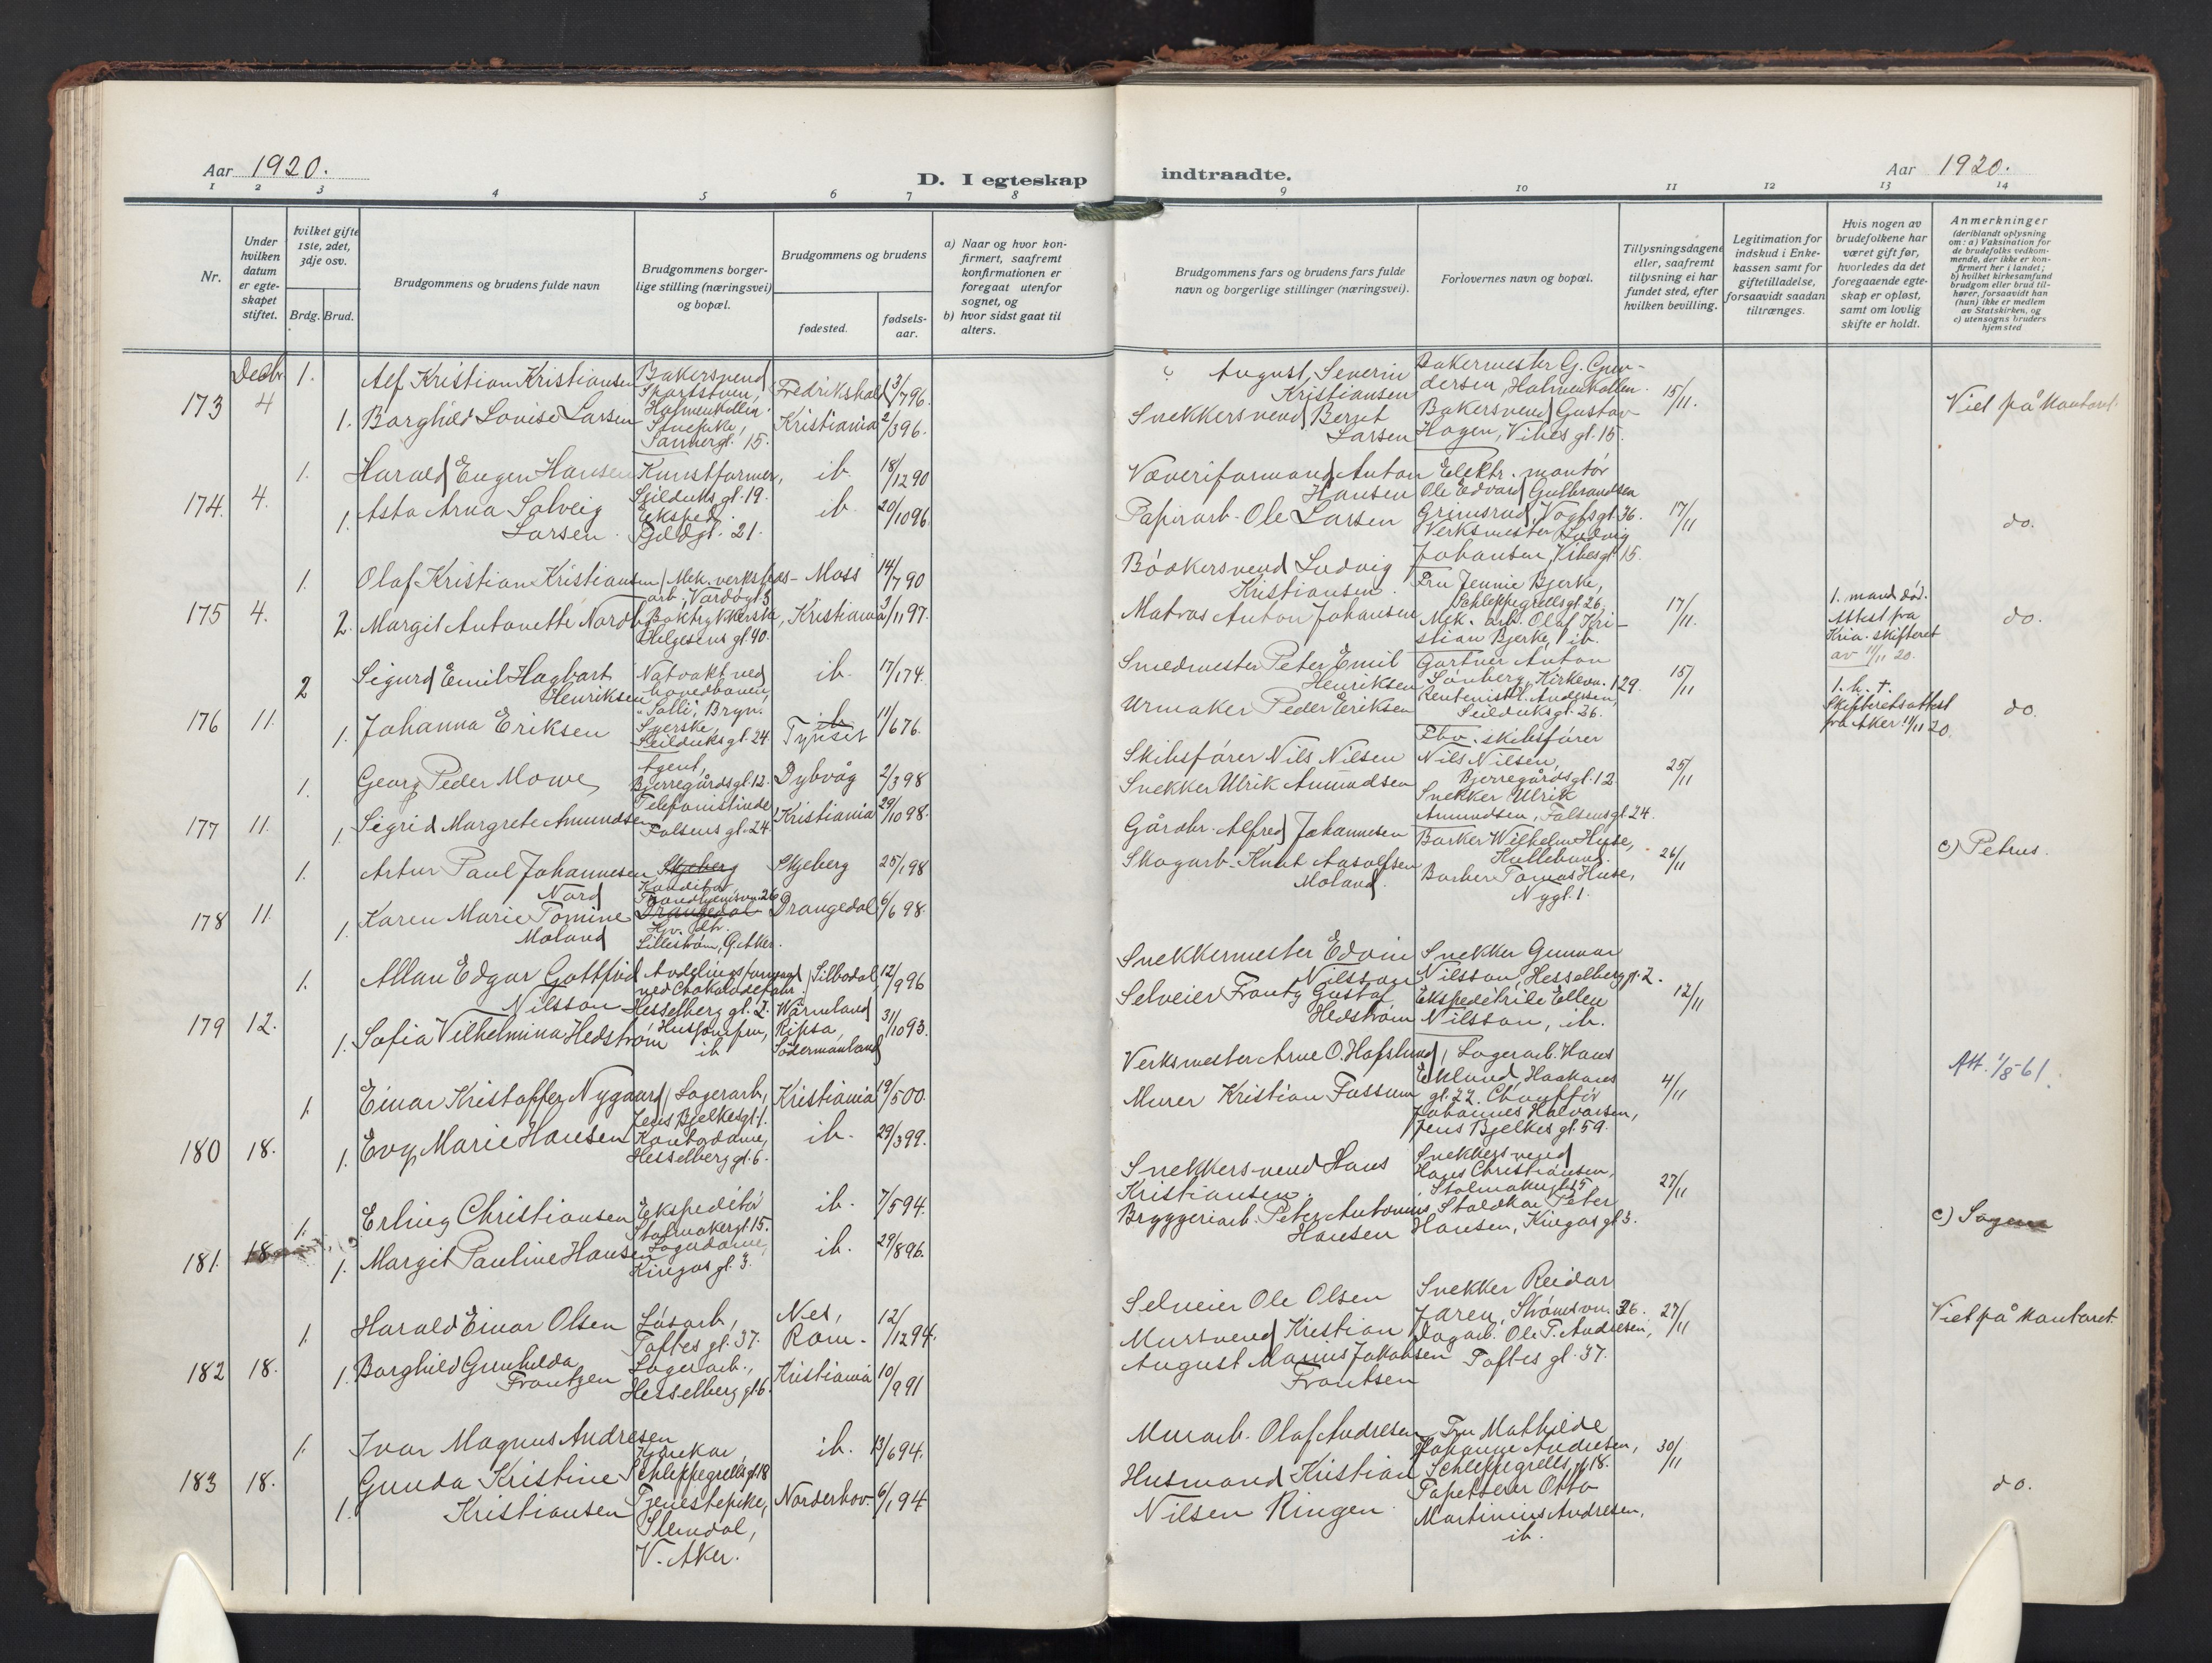 Aar 1920.
D. I egteskap
indtraadte.
Aar 1920.
1 2 3 4 5 6 7 8 9 10 11 12 13 14
Nr.
Under hvilken datum er egteskapet stiftet.
hvilket gifte 1ste, 2det, 3dje osv.
Brdg. Brud.
Brudgommens og brudens fulde navn
Brudgommens borgerlige stilling (næringsvei) og bopæl.
Brudgommens og brudens
fødested.
fødselsaar.
a) Naar og hvor konfirmert, saafremt konfirmationen er foregaat utenfor sognet, og
b) hvor sidst gaat til alters.
Brudgommens fars og brudens fars fulde navn og borgerlige stillinger (næringsvei).
Forlovernes navn og bopæl.
Tillysningsdagene eller, saafremt tillysning ei har fundet sted, efter hvilken bevilling.
Legitimation for indskud i Enkekassen samt for giftetilladelse, forsaavidt saadan tiltrænges.
Hvis nogen av brudefolkene har været gift før, hvorledes da det foregaaende egteskap er opløst, samt om lovlig skifte er holdt.
Anmerkninger
(deriblandt oplysning om: a) Vaksination for de brudefolks vedkommende, der ikke er konfirmert her i landet; b) hvilket kirkesamfund brudgom eller brud tilhører, forsaavidt han (hun) ikke er medlem av Statskirken, og c) utensogns bruders hjemsted
Decbr.
173 4
1. Alf Kristian Kristiansen
Bakersvend Sportsstuen, Holmenkollen.
Fredrikshald 3/7 96.
August Severin Kristiansen
Bakermester G. Gundersen, Holmenkollen.
15/11.
Viet på kontoret
1. Borghild Lovise Larsen
Sannergt. 15.
Kristiania 2/3 96.
Snekkersvend Bernt Larsen
Bakersvend Gustav Hagen, Vibes gt. 15.
174. 4.
1. Harald Eugen Hansen
Kunstformer, Seilduks gt. 19.
ib. 18/12 90
Væveriformand Anton Hansen
Elektr. montør Ole Edvard Gulbrandsen Grimsrud, Vogts gt. 36.
17/11
do.
1. Asta Arna Solveig Larsen.
Eksped. 21.
ib. 20/10 96
Papirarb. Ole Larsen
Verksmester Ludvig Johansen, Vibesgt. 15.
175 4.
1. Olaf Kristian Kristiansen
Mek. verksteds-arb., Vardøgt. 3
Moss 14/7 90
Bödkersvend Ludvig Kristiansen.
Fru Jennie Bjerke, Schleppegrellsgt. 26.
17/11.
1. mand død. Attest fra Kria. skifteret av 11/11 20.
do.
2. Margit Antonette Nordby
Helgesens gt. 90.
Kristiania 3/11 97.
Matros Anton Johansen
Mek. arb. Olaf Kristian Bjerke, ib.
176 11.
2 Sigurd Emil Hagbart Henriksen
Natvakt ved hovedbanen, "Solli", Bryn.
ib. 17/1 74.
Smedmester Peter Emil Henriksen
Gartner Anton Sønberg, Kirkevn. 129.
15/11
1. h. †. Skifteretsattest fra Aker 11/11 20.
do.
1. Johanna Eriksen
Syerske, Seilduks gt. 24.
Tynset 11/6 76.
Urmaker Peder Eriksen
Rentenist H. Andersen, Seilduksgt. 36.
177 11.
1. Georg Peder Mowe
Agent, Bjerregårdsgt. 12.
Dybvåg 2/3 98
Skibsfører Nils Nilsen
Fhv. skibsfører Nils Nilsen, Bjerregårdsgt. 12
25/11
1. Sigrid Margrete Amundsen
Telefonistinde Falsens gt. 24.
Kristiania 29/10 98.
Snekker Ulrik Amundsen
Snekker Ulrik Amundsen, Falsens gt. 24.
178 11.
1. Artur Paul Johannesen Nord
Skjeberg Konditor Trondhjemsvn. 26
Skjeberg 25/1 98
Gårdbr. Alfred Johannesen
Barker Wilhelm Huse, Hullebund.
26/11
c) Petrus.
1. Karen Marie Tomine Moland
Drangedal Lilleström, Ø. Aker.
Drangedal 6/6 98.
Skogarb. Knut Aasolfsen Moland.
Barker Tomas Huse, Nygt. 1.
179 12.
1. Allan Edgar Gottfrid Nilsson
Avdelingsformand ved Chokoladefabr. Hesselberg gt. 2.
Silbodal, Wärmland 12/9 96
Snekkermester Edvin Nilsson
Snekker Gunnar Nilsson, Hesselberg gt. 2.
12/11
1. Sofia Vilhelmina Hedström
Husjomfru, ib
Ripsa, Södermanland 31/10 93.
Selveier Frantz Gustaf Hedström
Ekspeditrise Ellen Nilsson, ib.
180 18.
1. Einar Kristoffer Nygaard
Lagerarb, Jens Bjelkesgt. 1.
Kristiania 19/5 00.
Verksmester Arne O. Hafslund
Lagerarb. Hans Eklund, Haakons gt. 22.
4/11
Att. 1/8-61.
1. Evy Marie Hansen
Kontordame, Hesselberg gt. 6.
ib. 29/3 99.
Murer Kristian Fossum
Chauffør Johannes Halvorsen, Jens Bjelkes gt. 59.
181. 18
1. Erling Christiansen
Ekspeditør Stolmakergt. 15.
ib. 7/5 94.
Snekkersvend Hans Kristiansen.
Snekkersvend Hans Christiansen, Stolmakergt. 15.
27/11
c) Sagene
1. Margit Pauline Hansen
Lagerdame, Kingos gt. 3.
ib. 29/8 96.
Bryggeriarb. Peter Antonius Hansen
Staldkar Peter Hansen, Kingos gt. 3.
182 18.
1. Harald Einar Olsen
Løsarb, Toftes gt. 37.
Nes, Rom. 12/12 94.
Selveier Ole Olsen
Snekker Reidar Jaren, Strømsvn. 36.
27/11
Viet på kontoret
1. Borghild Gunhilda Frantzen
Lagerarb., Hesselberg gt. 6.
Kristiania 10/9 91
Mursvend Kristian August Marius Jakobsen Frantsen
Dagarb. Ole T. Andresen, Toftes gt. 37.
183 18.
1. Ivar Magnus Andresen
Kjørekar Schleppegrells gt. 18
ib. 13/6 94.
Murarb. Olaf Andresen
Fru Mathilde Johanne Andresen, Schleppegrells gt. 18.
30/11
do.
1. Gunda Kristine Kristiansen
Tjenestepike, Slemdal, V. Aker.
Norderhov. 6/1 94
Husmand Kristian Nilsen Ringen.
Papetserer Otto Martinius Andresen, ib.